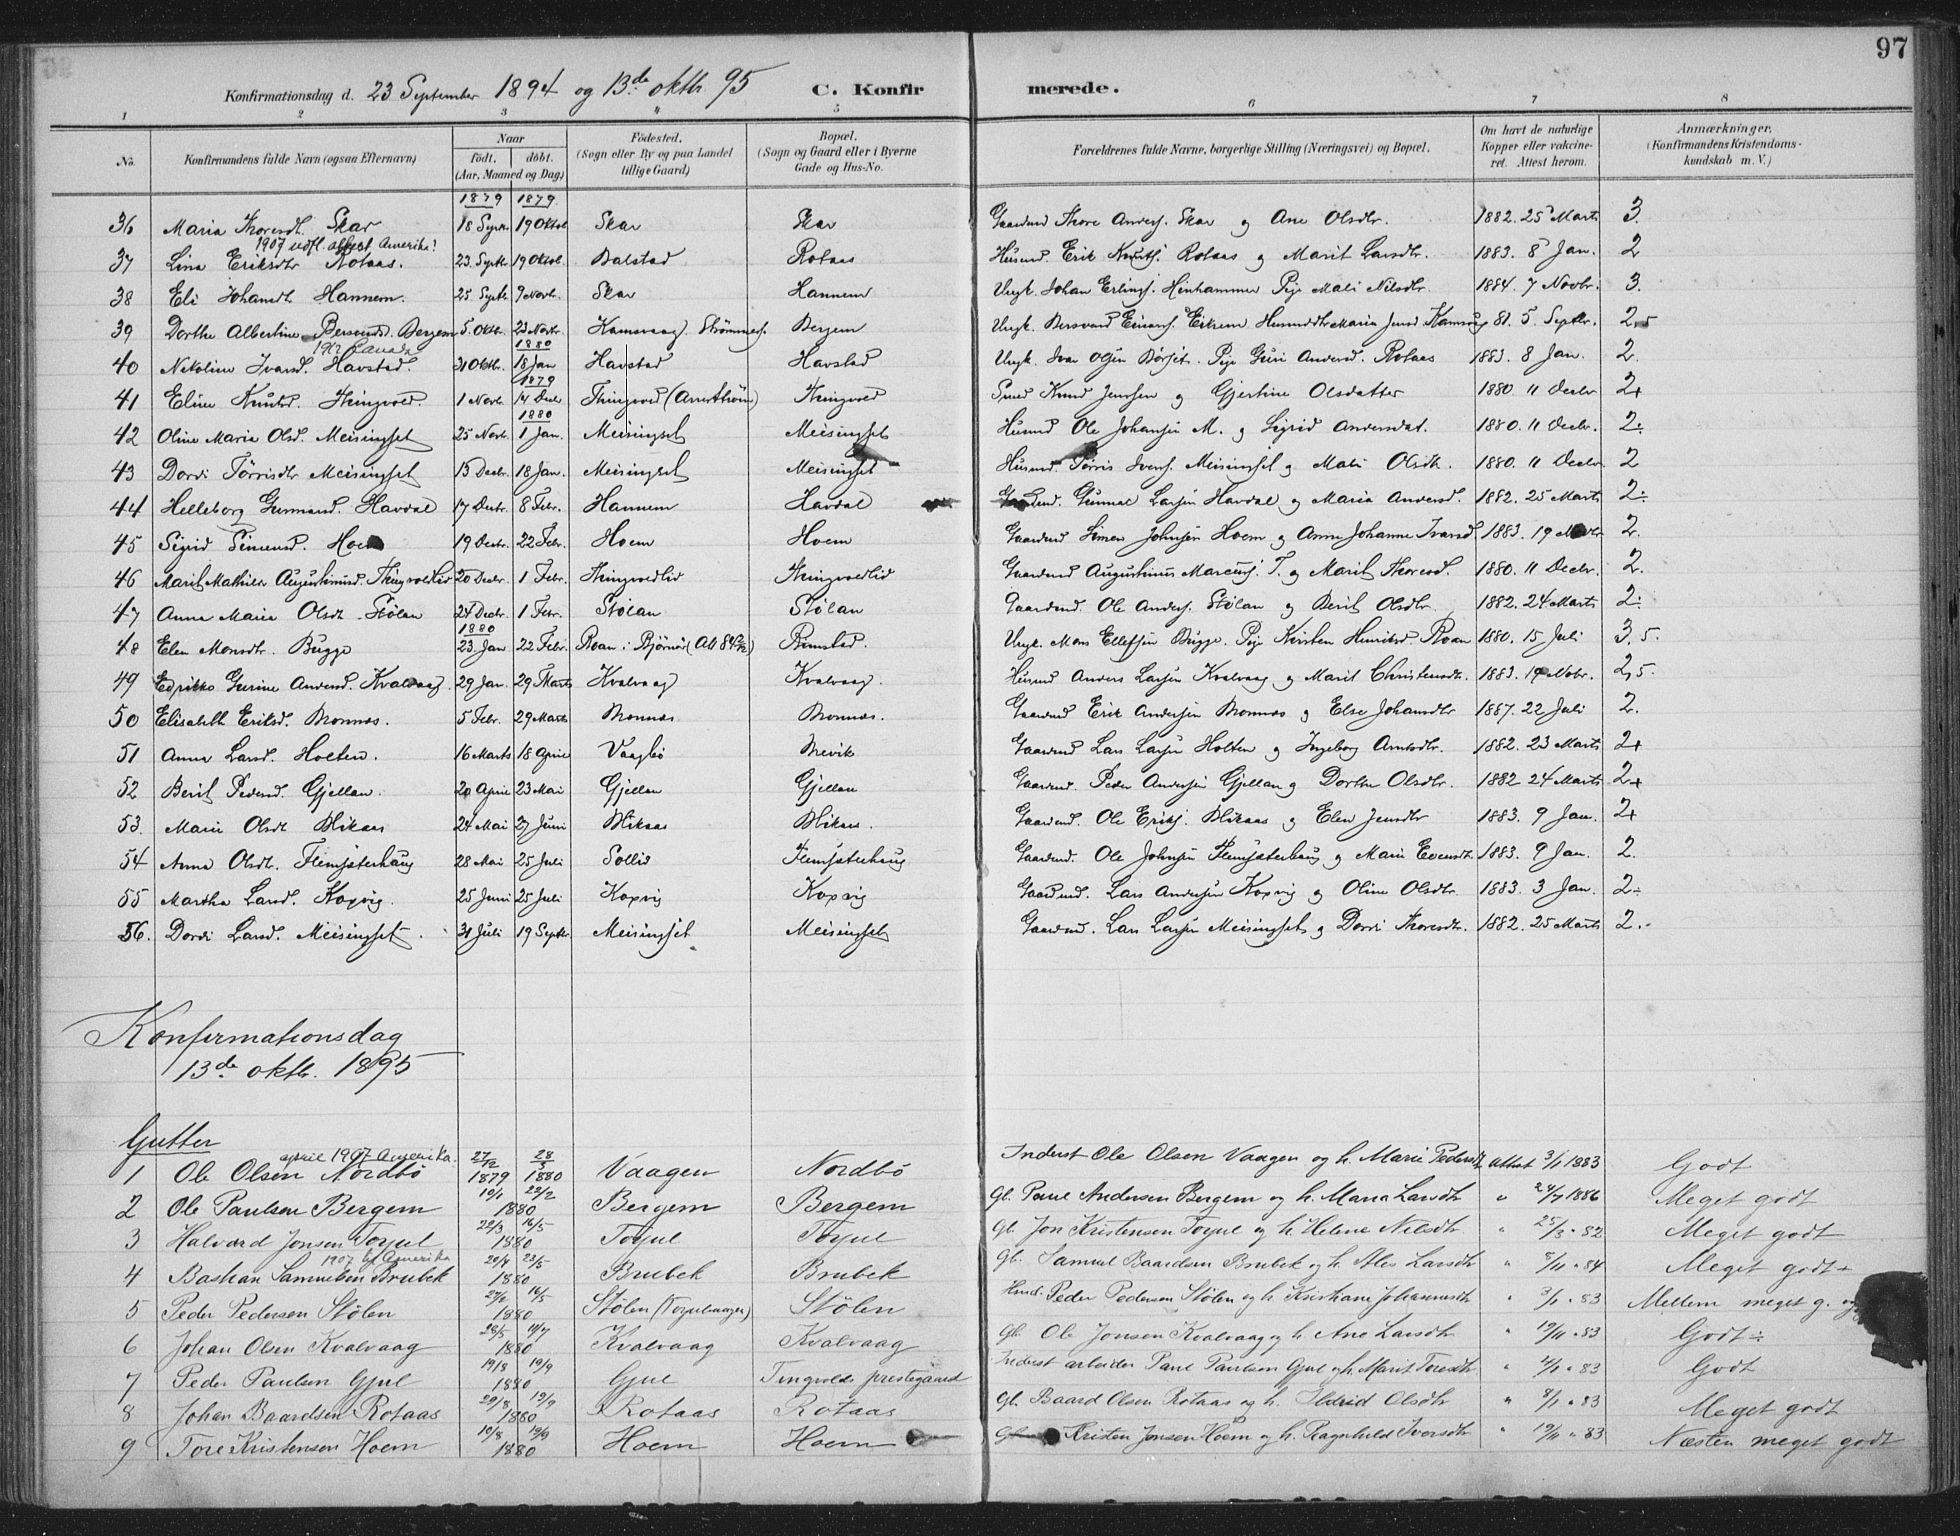 97
Konfirmationsdag d. 23 September 1894 og 13de oktbr 95 C. Konfirmerede.
1 2 3 4 5 6 7 8
No.
Konfirmandens fulde Navn (ogsaa Efternavn)
Naar født. døbt. (Aar, Maaned og Dag)
Födested. (Sogn eller By og paa Landet tillige Gaard)
Bopæl. (Sogn og Gaard eller i Byerne Gade og Hus-No.
Forældrenes fulde Navne, borgerlige Stilling (Næringsvei) og Bopæl.
Om havt de naturlige Kopper eller vakcineret. Attest herom.
Anmærkninger. (Konfirmandens Kristendomskundskab m. V.)
1879 1879
36 Maria Thoresdt. Skar 18 Septr. 19 Oktbr Skar Skar Gaardmd Thore Anders. Skar og Ane Olsdtr. 1882. 25 Marts 3.
1907 udfl. attest Amerika!
37 Lina Eriksdtr Rotaas. 23. Septbr 19 Oktbl. Balstad Rotaas Husmd. Erik Knuts. Rotaas og Marit Larsdtr. 1883. 8 Jan. 2
38 Eli Johansdt Hannem. 25 Septbr. 9 Novbr. Skar Hannem Ungk. Johan Erlings. Heinhammer Pige Mali Nilsdtr. 1884. 7 Novbr. 3.
39 Dorthe Albertine Bersvends. Bergem 5. Oktbr. 23 Novbr. Kamsvaag Strømmes. Bergem Ungk. Bersvend Einars. Eikrem Husmdsdtr Maria Jensd. Kamsvag 81. 5. Septbr. 2,5
1912 Canada 1880
40 Nikoline Ivarsd. Havstad. 31 Oktbr. 18 Jan Havstad Havstad Ungk. Ivar Olsen Børset. Pige Guri Andersd. Rotaas 1883. 8 Jan. 2.
1879
41 Eline Knutsd. Thingvold. 1 Novbr. 14 Decbr Thingvold Thingvold Smed Knud Jenssen og Gjertine Olsdatter 1880. 11 Decbr 2+
1880
42 Oline Maria Olsd. Meisingset 25 Novb. 1 Jan. Meisingset Meisingset Husmd Ole Johansen M. og Sigrid Andersdat. 1880. 11 Decbr. 2.
43 Dordi Tørrisdtr Meisingset 13 Decbr. 18 Jan. Meisingset Meisingset Husmd. Tørris Ivers. Meisingset og Mali Olsdtr. 1880. 11 Decbr 2
44 Helleborg Gunnarsd. Havdal 17 Decbr. 8 Febr. Hannem Havdal Gaardmd. Gunnar Larsen Havdal og Maria Andersd. 1882. 25 Marts 2÷
45 Sigrid Simensd. Hoem 19 Decbr. 22 Febr. Hoem Hoem Gaardmd Simen Johnsen Hoem og Anne Johanne Ivarsd. 1883. 19 Novbr 2.
46 Marit Mathilde Augustinusd. Thingvoldlid 20 Decbr. 1 Febr. Thingvoldlid Thingvoldlid Gaardmd Augustinus Marcus. T. og Marit Thoresd. 1880. 11 Decbr. 2.
47 Anna Maria Olsdt. Stølan 24 Decbr. 1 Febr. Stølan Stølan Gaardmd. Ole Anders. Stølan og Berit Olsdtr. 1882. 24 Marts 2.
1880
48 Elen Monsdtr. Bugge 23. Jan 22 Febr. Roan i Bjørnør Rimstad. Ungk. Mons Ellefsen Bugge. Pige Kirsten Henriksd. Roan 1880. 15 Juli 3,5.
49 Edrikke Gurine Andersd. Kvalvaag 29 Jan. 29 Marts Kvalvaag Kvalvaag. Husmd Anders Larsen Kvalvaag og Marit Christensdt. 1883. 19 Nobr. 2,5.
50 Elisabeth Eriksd. Bronnæs. 5 Febr. 29 Marts Bronnæs Bronnæs. Gaardmd Erik Andersen Bronnæs og Else Johansdtr 1887. 22 Juli 2.
51 Anna Larsd. Holten. 16 Marts 18 April Vaagbø Brevik Gaardmd Lars Larsen Holten og Ingeborg Arntsdtr. 1882. 23 Marts 2+
52 Berit Pedersd. Gjellan. 20 April 23 Mai Gjellan Gjellan Gaardmd. Peder Andersen Gjellan og Dorthe Olsdtr. 1882 24 Marts 2+
53. Marie Olsdt Blikaas 24 Mai 27 Juni Blikaas Blikaas. Gaardmd. Ole Eriks. Blikaas og Elen Jensdtr 1883. 9 Jan. 2+
54 Anna Olsdt. Flemsæterhaug 28 Mai 25 Juli Sollid Flemsæterhaug Gaardmd. Ole Johnsen Flemsæterhaug og Marie Evensdt. 1883. 9 Jan. 2.
55 Martha Larsd. Koxvig. 25 Juni 25 Juli Koxvig Koxvig Gaardmd. Lars Andersen Koxvig og Oline Olsdtr. 1883. 3 Jan. 2÷
56. Dordi Larsd. Meisingset. 31 Juli 19 Septbr. Meisingset Meisingset Gaardmd. Lars Larsen Meisingset og Dordi Thoresdtr. 1882. 25 Marts 2.
Konfirmationsdag
13de oktbr. 1895
Gutter
april 1907 Amerika.
1 Ole Olsen Nordbø 27/12 1879 28/3 1880 Vaagen Nordbø Inderst Ole Olsen Vaagen og h. Marie Pedersdt Attest 3/11 1883 Godt
2 Ole Paulsen Bergem 10/1 22/2 1880 Bergem Bergem Gb. Paul Andersen Bergem og h. Maria Larsdtr " 24/7 1886 Meget godt
3 Halvard Jonsen Torjul 22/3 16/5 1880 Torjul Torjul Gb. Jon Kristensen Torjul og h. Helene Nilsdtr " 25/3 " 82 Meget godt
1907 til Amerika
4 Bastian Samuelsen Brubek 20/4 23/5 1880 Brubek Brubek Gb. Samuel Baardsen Brubek og h. Ales Larsdtr " 8/11 " 84 Meget godt÷
5 Peder Pedersen Stølen 16/5 1880 Stølen (Torjulvaagen) Stølen Husmd. Peder Pedersen Stølen og h. Kristiane Johannesdtr " 3/1 " 83 Mellem meget g. og
6 Johan Olsen Kvalvaag 28/5 11/7 1880 Kvalvaag Kvalvaag Gb. Ole Jonsen Kvalvaag og h. Ane Larsdtr " 19/11 " 83 Godt÷
7 Peder Paulsen Gjul 19/8 19/9 1880 Gjul Tingvolds prestegaard Inderst arbeider Paul Paulsen Gjul og h. Marit Toresdtr " 83 Godt
8 Johan Baardsen Rotaas 29/8 19/9 1880 Rotaas Rotaas Gb. Baard Olsen Rotaas og h. Ildrid Olsdtr " 8/1 " 83 Meget godt
9 Tore Kristensen Hoem 10/8 19/9 1880 Hoem Hoem Kristen Jonsen Hoem og h. Ragnhild Iversdtr " 19/11 " 83 Næsten meget godt